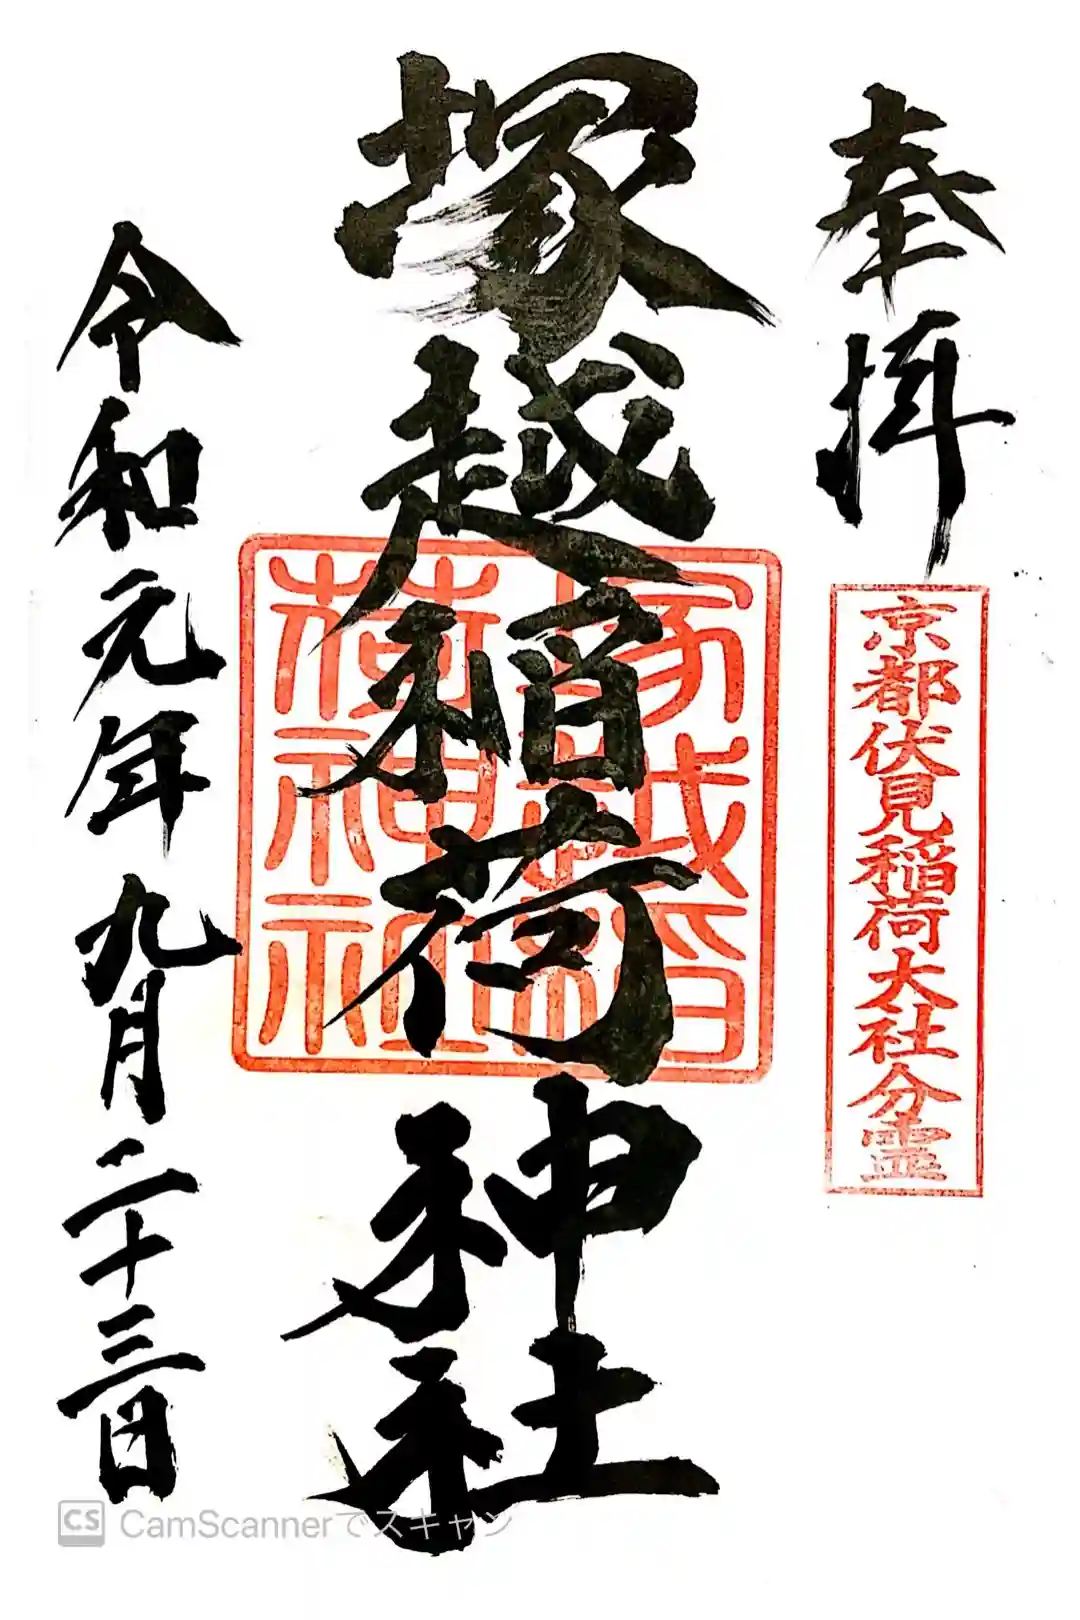 奉拝
京都伏見稲荷大社分霊
塚越稲荷神社
塚越稲
荷神社
令和元年九月二十三日
CS CamScannerでスキャン